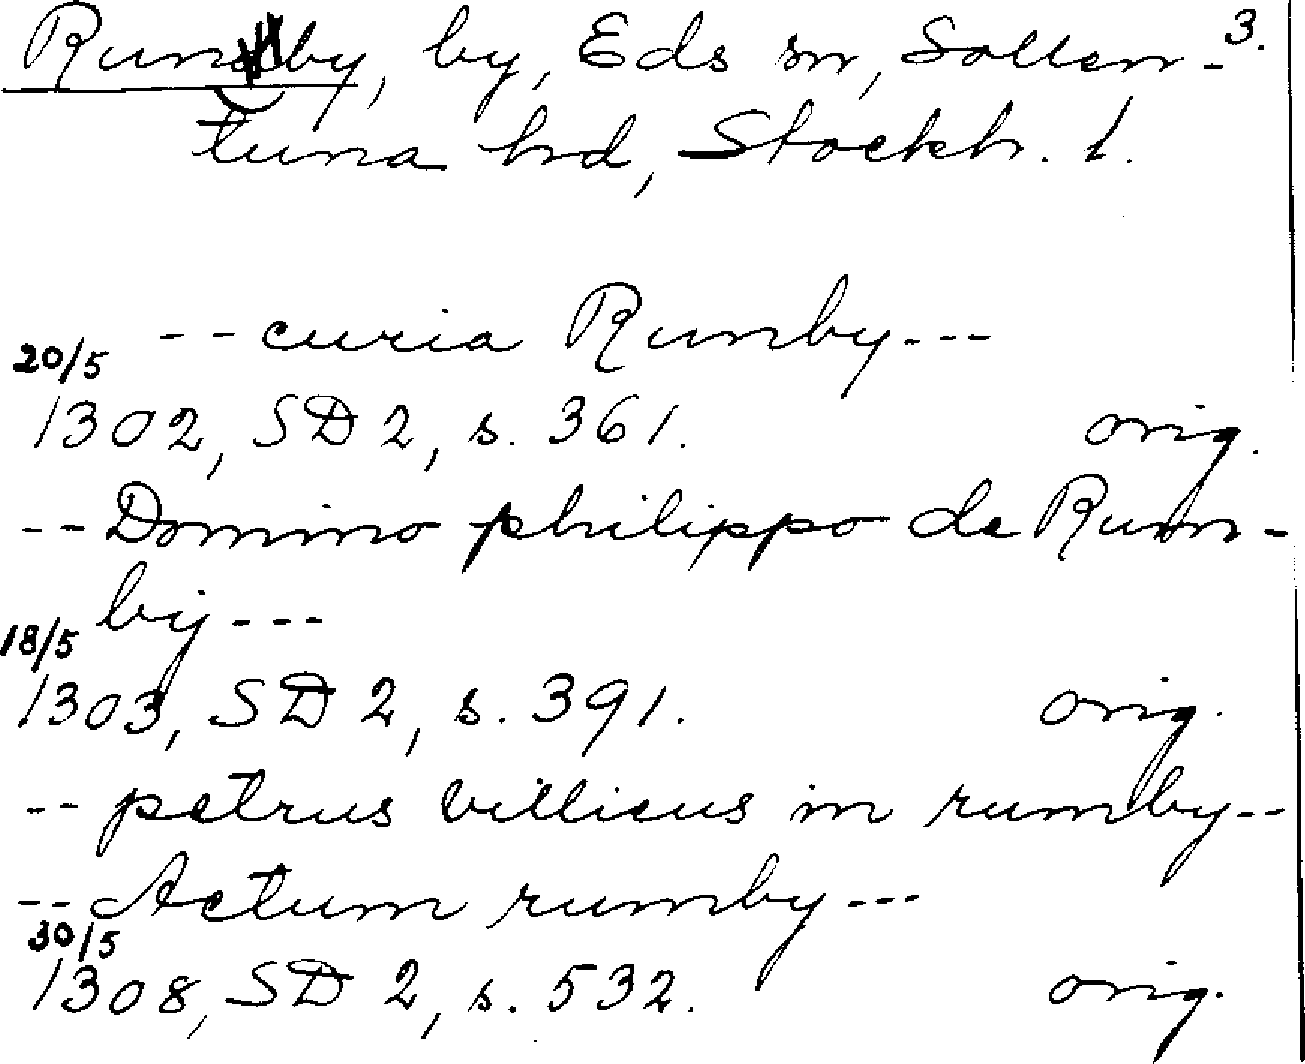 Runby, by, Eds sn, Sollen- 3.
tuna hd, Stockh. l.
--curia Runby---
20/5
1302, SD 2, s. 361. orig.
--Domino philippo de Rum-
by---
18/5
1303, SD 2, s. 391. orig.
--petrus villicus in rumby--
--Actum rumby---
30/5
1308, SD 2, s. 532. orig.